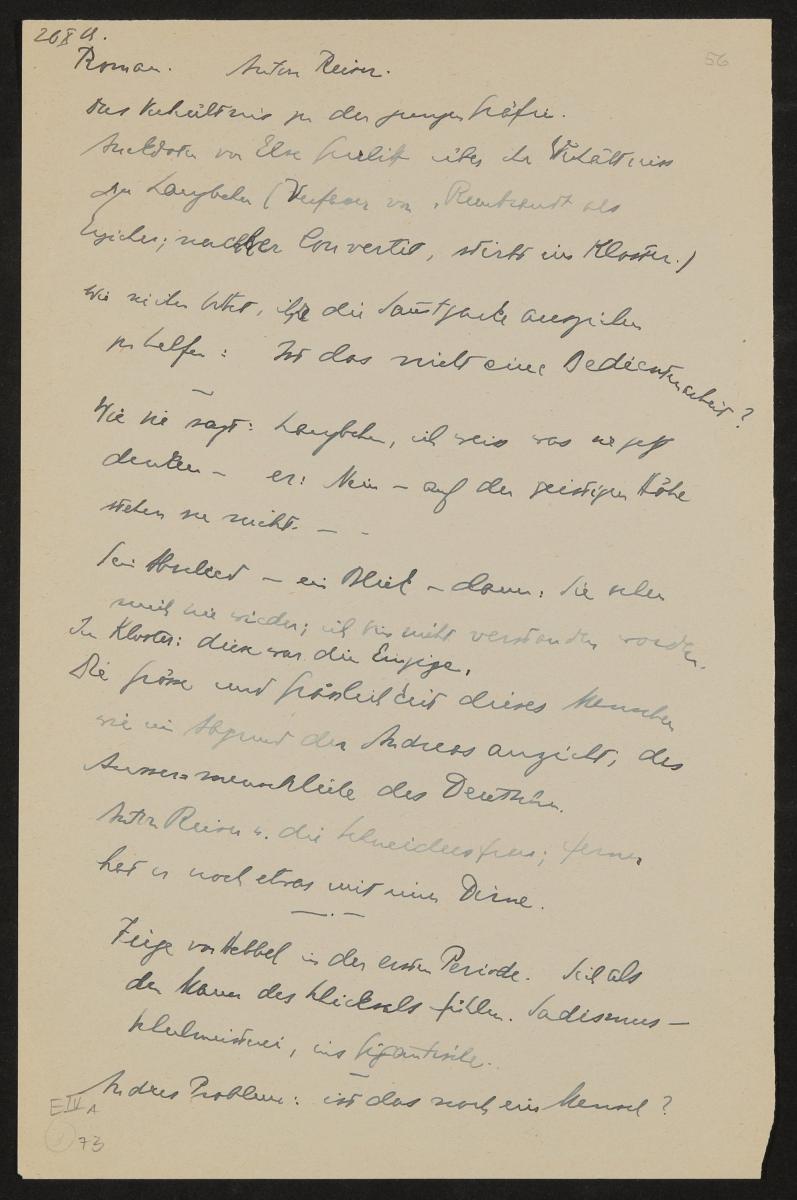 26 X
56
Roman. Anton Reiser.
Das Verhältnis zu der jungen Gräfin.
Anekdoten von Else über ihr Verhältniss
zu Langbehn (Verfasser von „Rembrandt als
Erzieher; nachher Convertit, stirbt im Kloster.)
Wie sie ihn bittet, ihr die auszuziehen
zu helfen: Ist das nicht eine Bedientenarbeit?
Wie sie sagt: Langbehn, ich weiss was sie jetzt
denken – er: Nein – auf der geistigen Höhe
stehen sie nicht. – –
Sein Abschied – ein Blick – dann: Sie sehen
mich nie wieder; ich bin nicht verstanden worden.
Im Kloster: diese war die Einzige.
Die Grösse und Grässlichkeit dieses Menschen
wie ein Abgrund der Andreas anzieht, das
Aussermenschliche des Deutschen.
Anton Reiser u. die Schneidersfrau; ferner
hat er noch etwas mit einer Dirne.
Züge von Hebbel in der ersten Periode. Sich als
den Mann des Schicksals fühlen. Sadismus –
Schulmeisterei, ins Gigantische.
Andres Problem: ist das noch ein Mensch?
E IV A
73